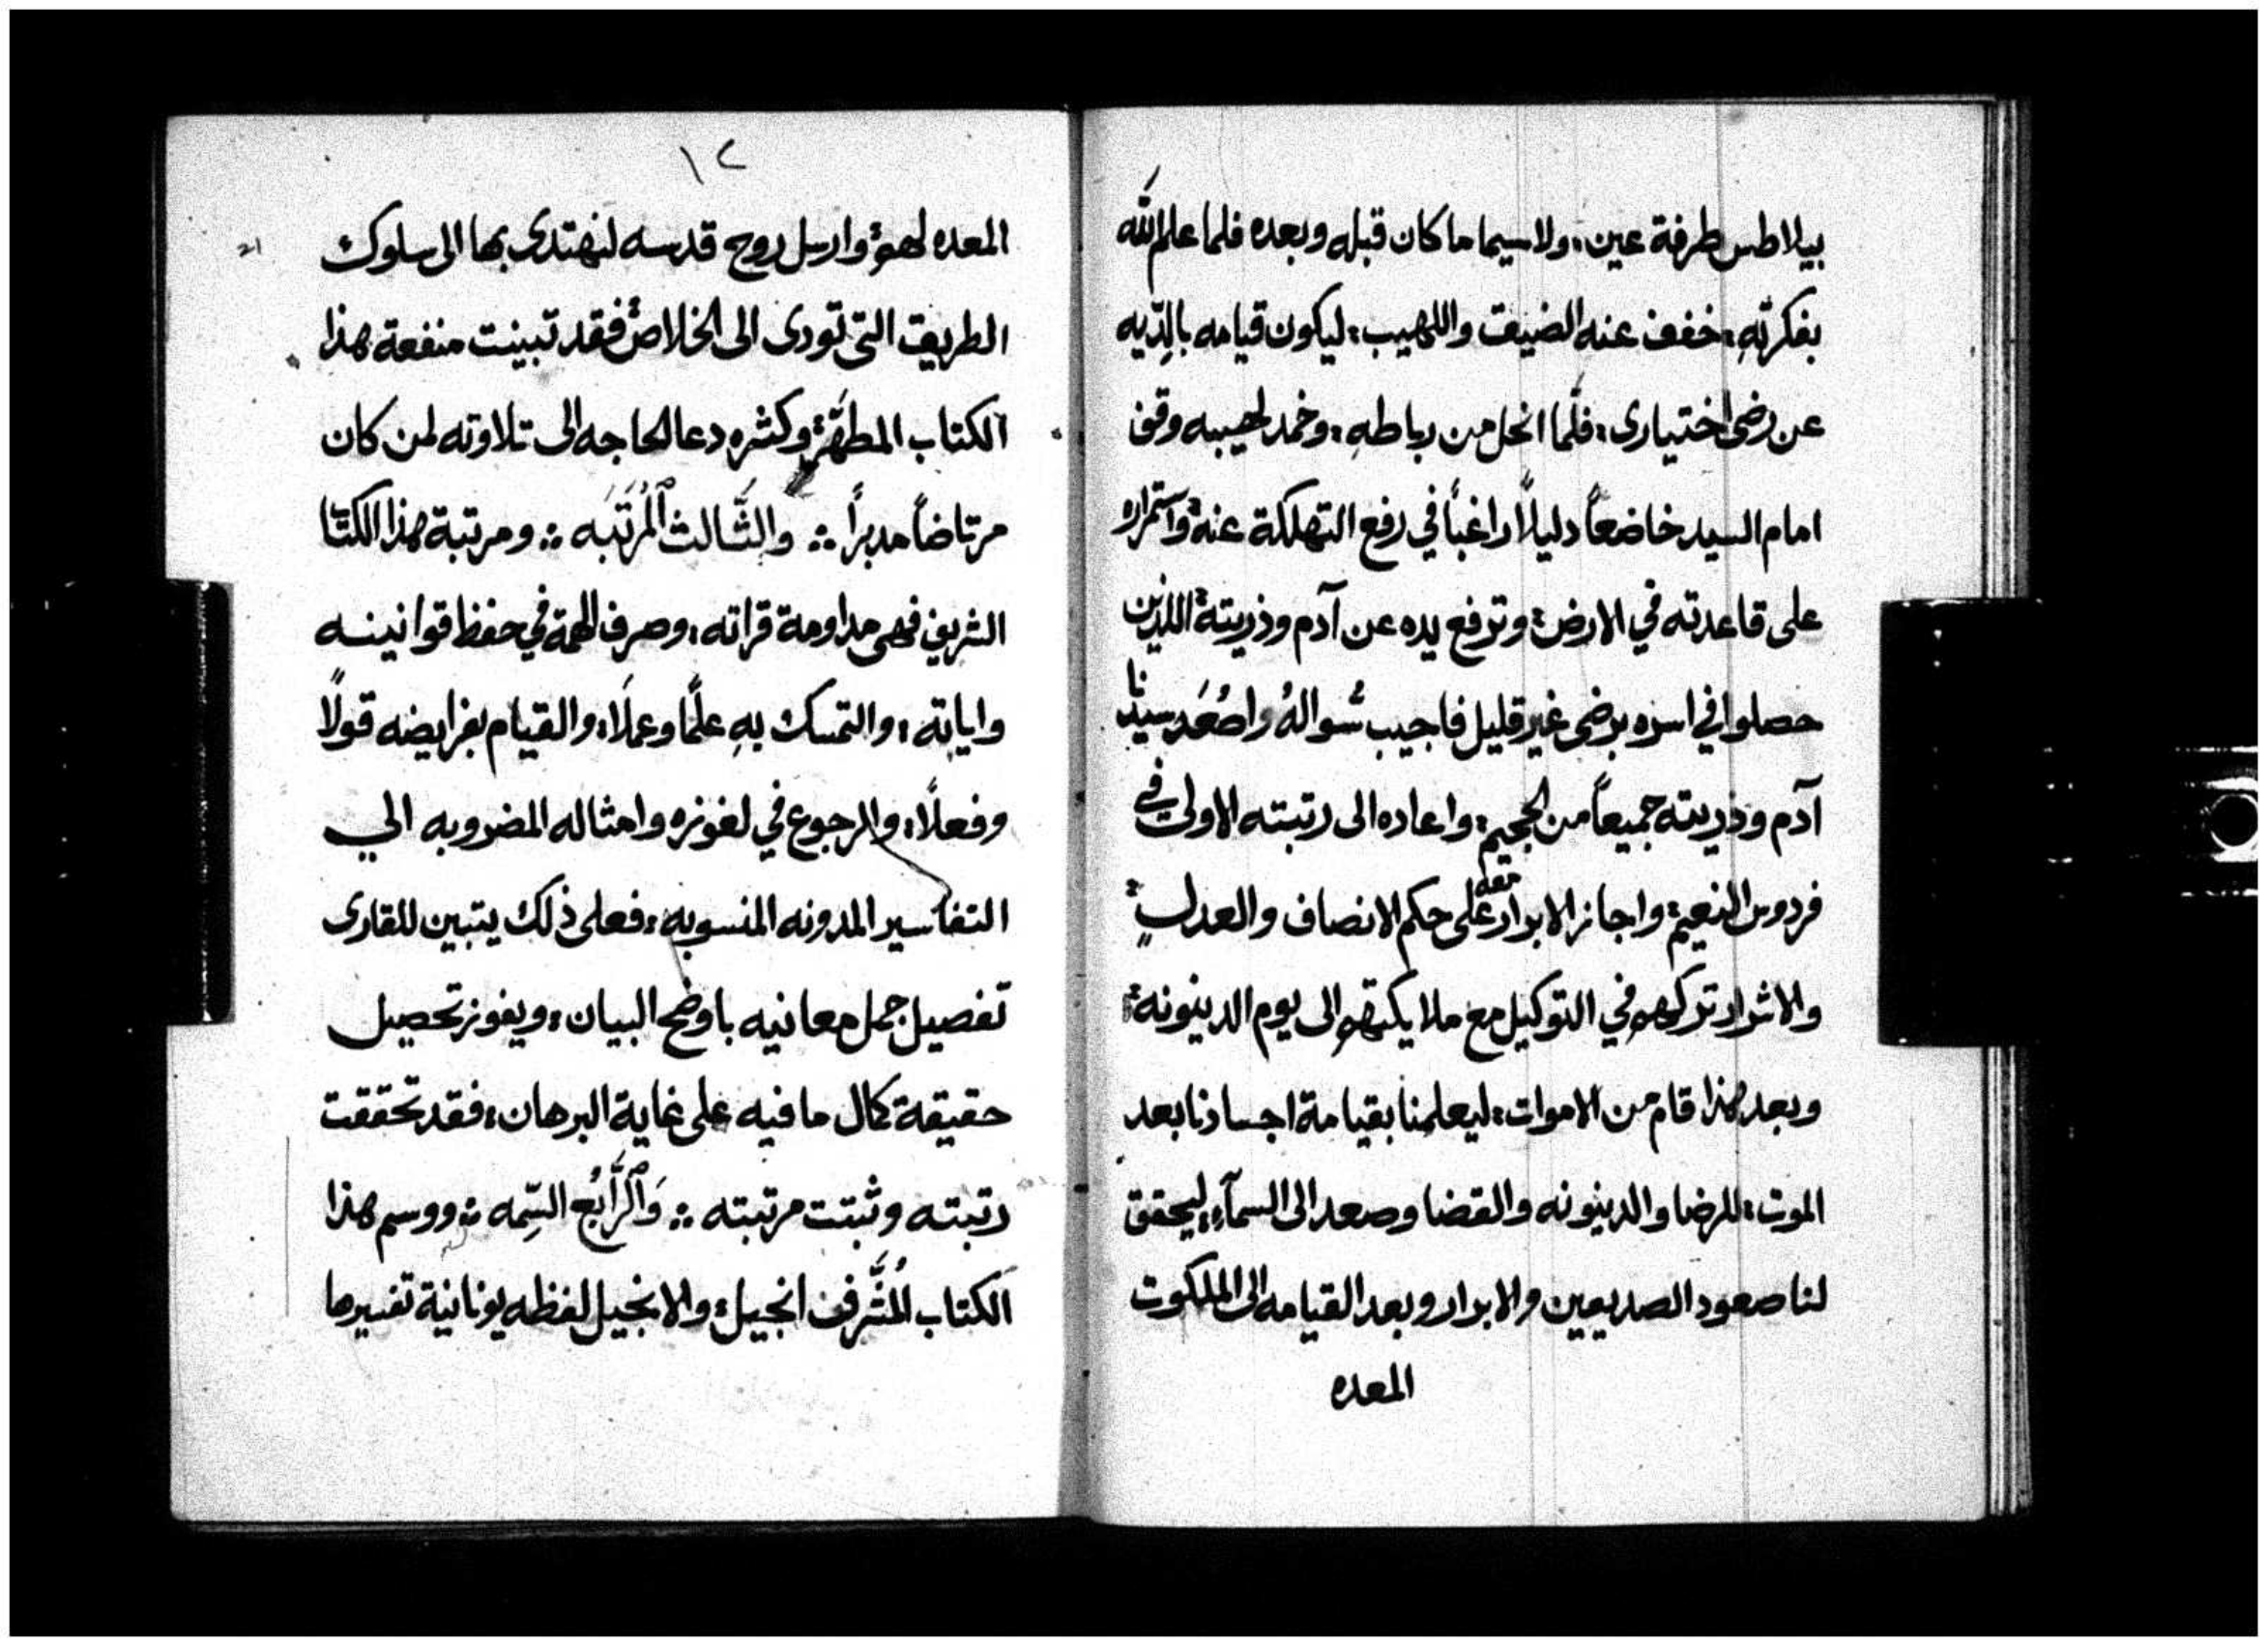 بيلاطس طرفة عين، ولاسيما ما كان قبله وبعده فلما علم الله
بفكرته، خفف عنه الضيق واللهيب، ليكون قيامه بالدّيه
عن رضى اختيارى، فلّما انحل من رباطهِ، وخمد لهيبه وقف
امام السيد خاضعاً دليلاً راغباً في رفع التهلكة عنه واستمراره
على قاعدته في الارض، وترفع يده عن آدم وذريته اللذين
حصلوا في اسره برضى غير قليل فاجيب سُوالهُ واصُعَد سيدنا
آدم وذريته جميعاً من الجحيم، واعاده الى رتبته الاولى في
فردوس النعيم، واجاز الابرار معه على حكم الانصاف والعدلٍ
والاشرار تركهم في التوكيل مع ملايكتهم الى يوم الدينونه
وبعد هذا قام من الاموات، ليعلمنا بقيامة اجسادنا بعد
الموت، للرضا والدينونه والقضا وصعد الى السمآء، ليحقق
لنا صعود الصديقين والابرار وبعد القيامه الى الملكوت
المعده
١٢
المعده لهم وارسل روح قدسه لنهتدى بها الى سلوك
الطريق التى تودى الى الخلاص فقد تبينت منفعة هذا
الكتاب المطهَّر وكثره دعا الحاجه الى تلاوته لمن كان
مرتاضاً مدبراً ؞ والثَّالث اَلمُرَتَبَه ؞ ومرتبة هذا الكتا
الشريف فهى مداومة قراته، وصرف الهمة في حفظ قوانينه
واياته، والتمسك بهِ علمًا وعملًا، والقيام بفرايضه قولًا
وفعلًا، والرجوع في لغوزه وامثاله المضروبه الي
التفاسير المدونه المنسوبه، فعلى ذلك يتبين للقارى
تفصيل جمل معانيه باوضح البيان، ويفوز تحصيل
حقيقة كمال ما فيه على غاية البرهان، فقد تحققت
رتبته وثبتت مرتبته ؞ وَاَلرَّابُع السِّمه ؞ ووسم هذا
الكتاب اُلمُشَّرف انجيل، والانجيل لفظه يونانية تفسيرها